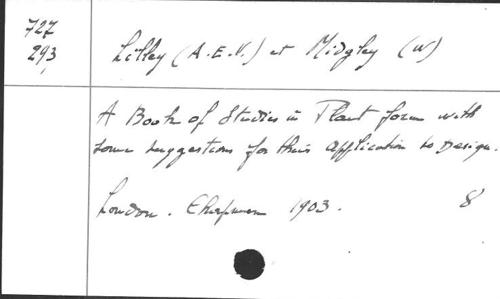 727
293
Lilley (A.E.V.) et Midgley (W)
A Book of Studies in Plant form with
some suggestions for their application to Design.
London. Chapman 1903. 8